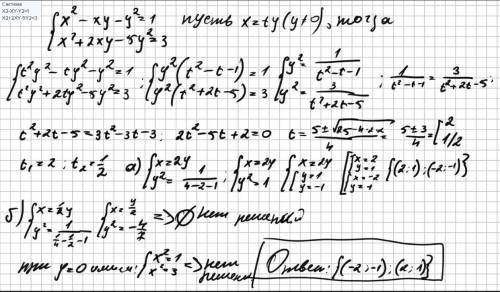 Система
X2-XY-Y2=1
X2+2XY-5Y2=3
{x² - xy - y² = 1
x² + 2xy - 5y² = 3 пусть x = ty (y≠0), тогда
{t²y² - ty² - y² = 1
t²y² + 2ty² - 5y² = 3 ; {y²(t² - t - 1) = 1
y²(t² + 2t - 5) = 3 {y² = 1/(t² - t - 1)
y² = 3/(t² + 2t - 5) ; 1/(t² - t - 1) = 3/(t² + 2t - 5) ;
t² + 2t - 5 = 3t² - 3t - 3 ; 2t² - 5t + 2 = 0 t = (5 ± √(25 - 4·2·2))/4 = (5 ± 3)/4 = [2
1/2
t₁ = 2 ; t₂ = 1/2 а) {x = 2y
y² = 1/(4-2-1) ; {x = 2y
y² = 1 {x = 2y
[y = 1
y = -1 [{x = 2
y = 1
{x = -2
y = 1 {(2; 1); (-2; -1)}
б) {x = 1/2 y
y² = 1/(1/4 - 1/2 - 1) {x = y/2
y² = -4/7 => ∅ нет решений
при y = 0 имеем: {x² = 1
x² = 3 => нет решений Ответ: {(-2; -1); (2; 1)}